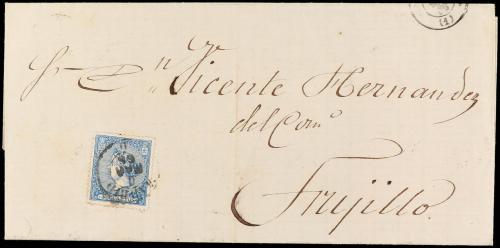 (1)
Sr Dn Vicente Hernandez
del Como
Trujillo.